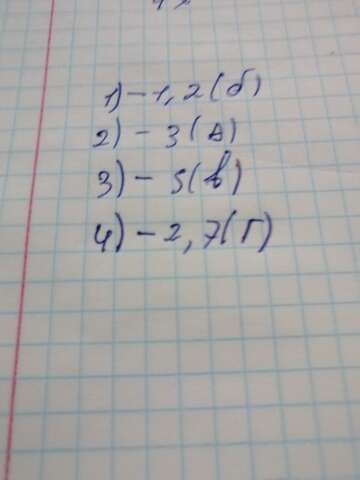 1) – 1,2 (б)
2) – 3 (А)
3) – 5 (в)
4) – 2,7 (Г)